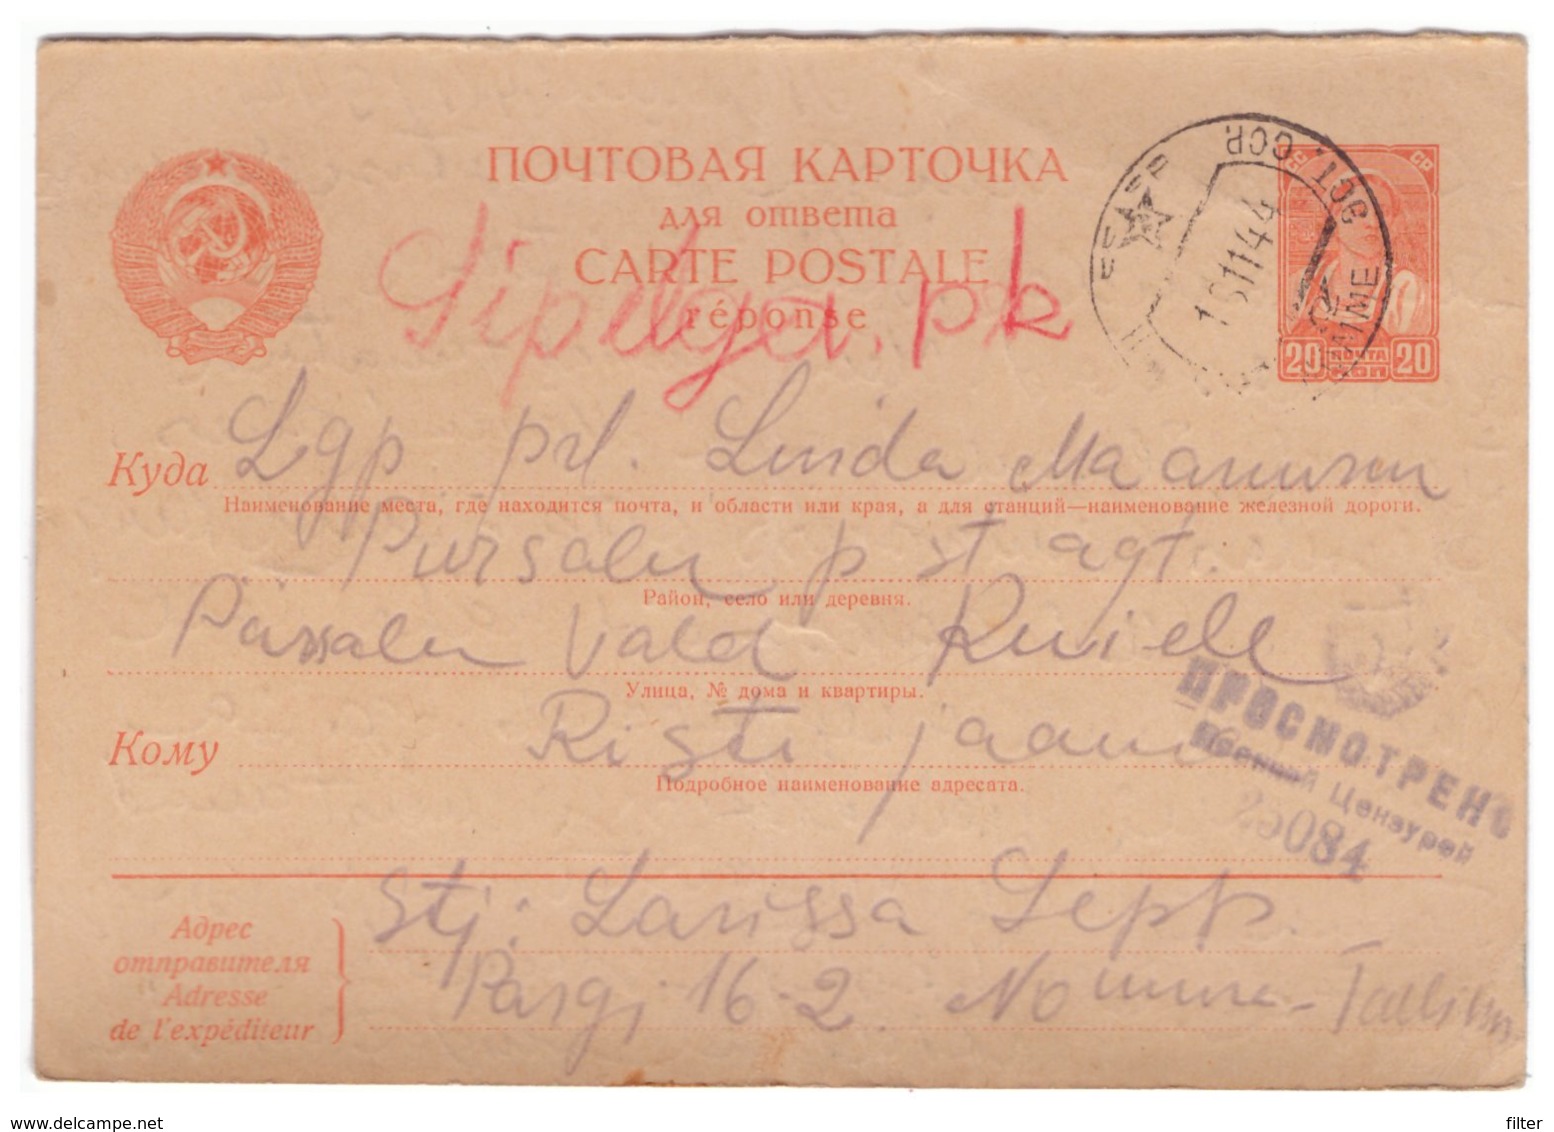 ПОЧТОВАЯ КАРТОЧКА
для ответа
CARTE POSTALE
réponse
Sipelga. pk
ЭСТ. ССР
161144
СС СС
20 ПОЧТА 20
Куда Lgp. prl. Linda
Наименование места, где находится почта, и области или края, а для станций—наименование железной дороги.
p st agt.
Район, село или деревня.
vald
Улица, № дома и квартиры.
Кому Risti jaam
Подробное наименование адресата.
ПРОСМОТРЕНО
Военной Цензурой
25084
Адрес
отправителя
Adresse
de l'expéditeur
Stj: Larissa Sepp.
Pargi 16-2. Nõmme-Tallinn
www.delcampe.net
filter